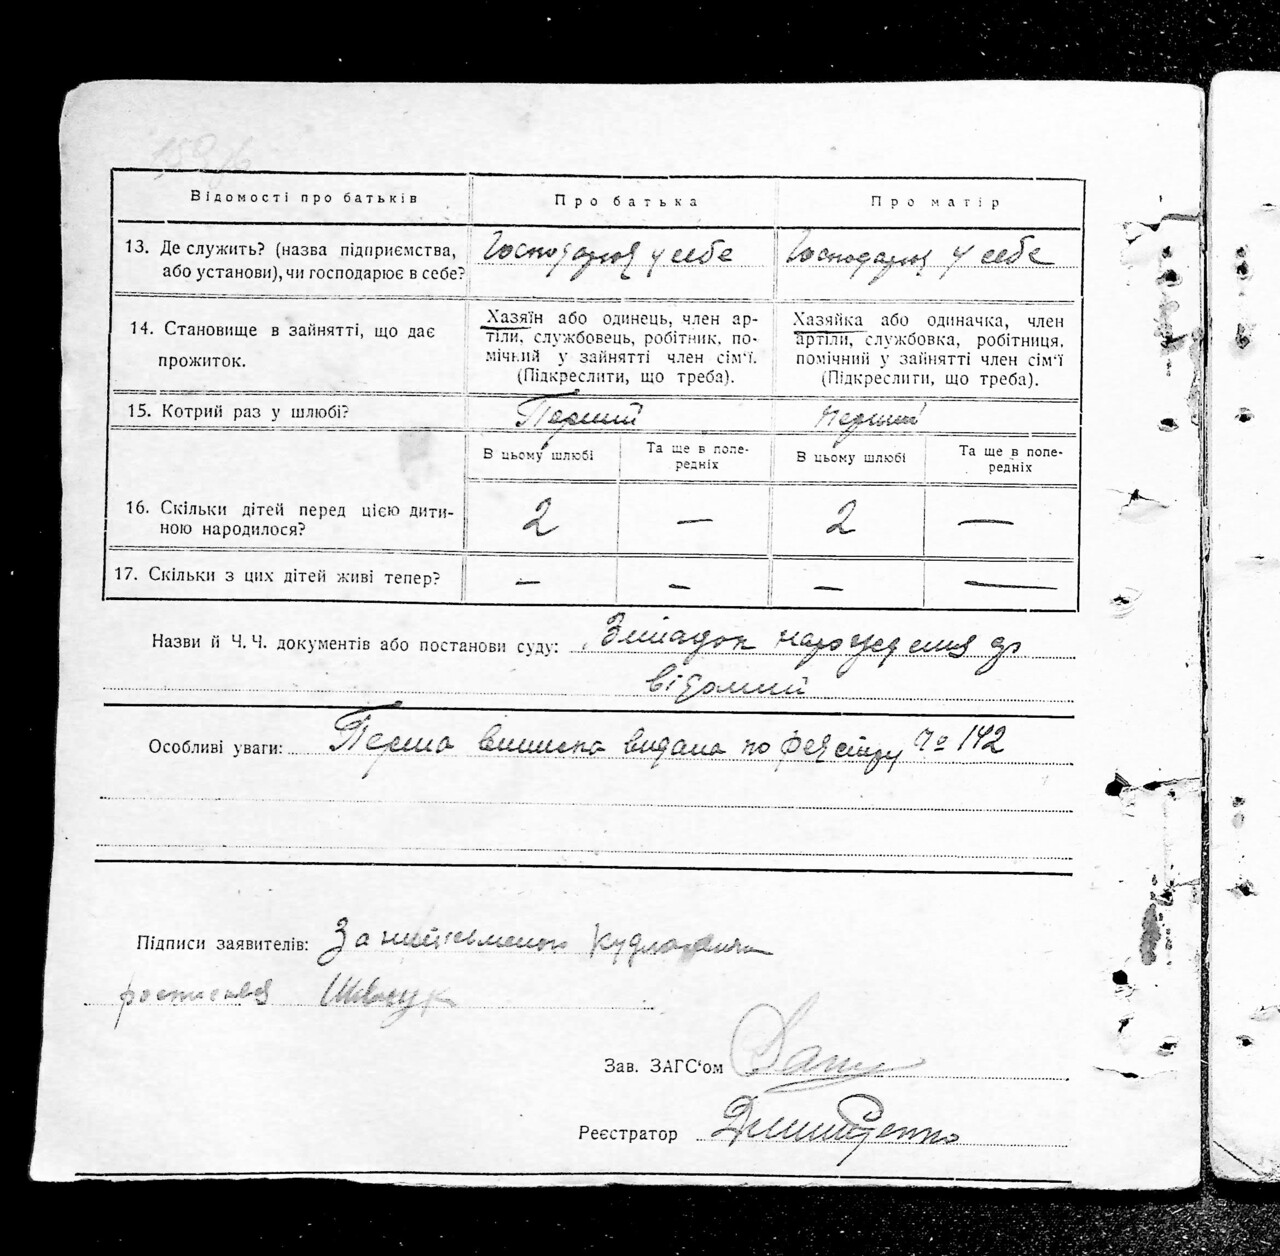 Відомості про батьків
Про батька
Про матір
13. Де служить? (назва підприємства,
або установи), чи господарює в себе?
Господарює у себе
Господарює у себе
14. Становище в зайнятті, що дає
прожиток.
Хазяїн або одинець, член ар-
тіли, службовець, робітник, по-
мічний у зайнятті член сім'ї.
(Підкреслити, що треба).
Хазяйка або одиначка, член
артіли, службовка, робітниця,
помічний у зайнятті член сім'ї
(Підкреслити, що треба).
15. Котрий раз у шлюбі?
Перший
Перший
В цьому шлюбі
Та ще в попе-
редніх
В цьому шлюбі
Та ще в попе-
редніх
16. Скільки дітей перед цією дити-
ною народилося?
2
—
2
—
17. Скільки з цих дітей живі тепер?
—
—
—
—
Назви й Ч. Ч. документів або постанови суду:
народження
відомий
Особливі уваги: Перша виписка видана по реєстру № 142
Підписи заявителів: За
росписався
Зав. ЗАГС'ом
Реєстратор